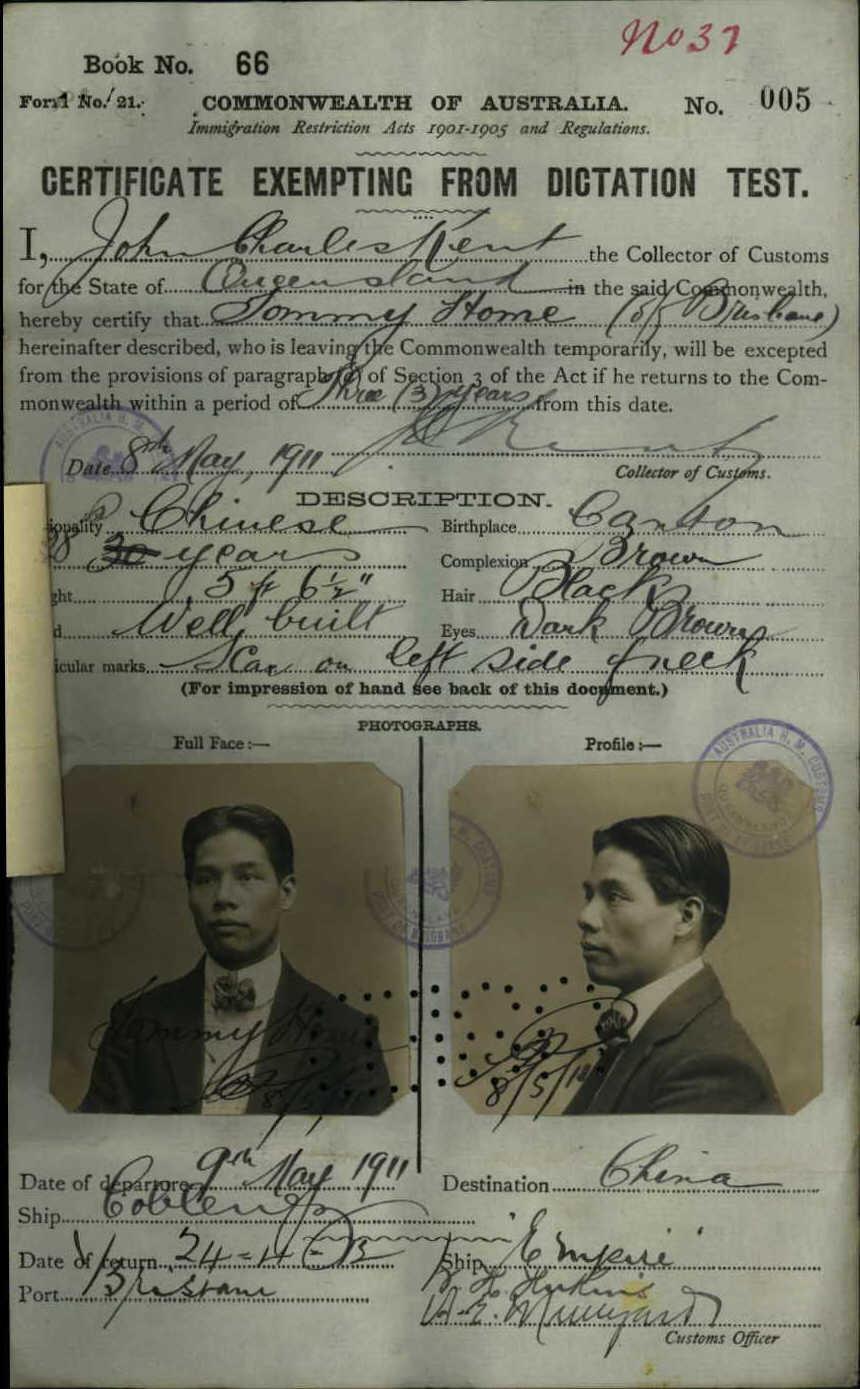 No 37
Book No. 66
Form No. 21. COMMONWEALTH OF AUSTRALIA. No. 005
Immigration Restriction Acts 1901-1905 and Regulations.
CERTIFICATE EXEMPTING FROM DICTATION TEST.
I, John Charles Kent the Collector of Customs
for the State of Queensland in the said Commonwealth,
hereby certify that Tommy Home (of Brisbane)
hereinafter described, who is leaving the Commonwealth temporarily, will be excepted
from the provisions of paragraph of Section 3 of the Act if he returns to the Com-
monwealth within a period of Three (3) years from this date.
Date 8th May, 1911
Collector of Customs.
DESCRIPTION.
Chinese Birthplace Canton
30 years Complexion Brown
5 ft 6½" Hair Black
Well built Eyes Dark Brown
icular marks Scar on left side of neck
(For impression of hand see back of this document.)
PHOTOGRAPHS.
Full Face:— Profile:—
AUSTRALIA H. M. CUSTOMS
Tommy Home
8/5/11
8/5/11
Date of departure 9th May 1911 Destination China
Ship Coblenz
Date of return 24-4-13 Ship "Empire"
Port Brisbane
Customs Officer